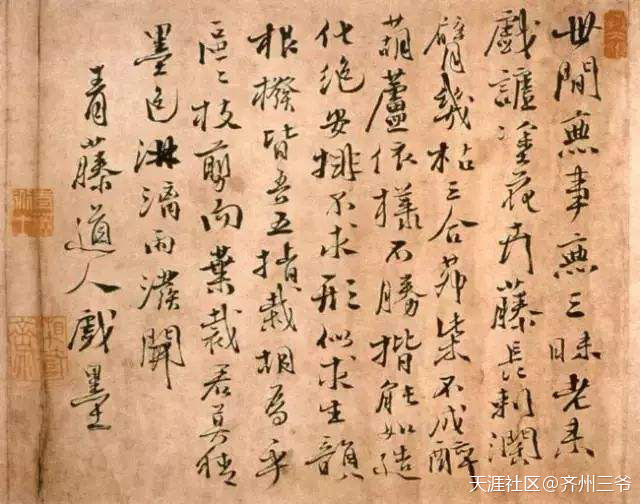 世間無事無三昧老來
戲謔塗花卉藤長刺濶
臂幾枯三合茆柴不成醉
葫蘆依樣不勝揩能如造
化絕安排不求形似求生韻
根撥皆吾五指栽胡為乎
區〻枝剪而葉裁君莫猜
墨色淋漓雨潑開
青藤道人戲墨
天涯社区@齐州三爷